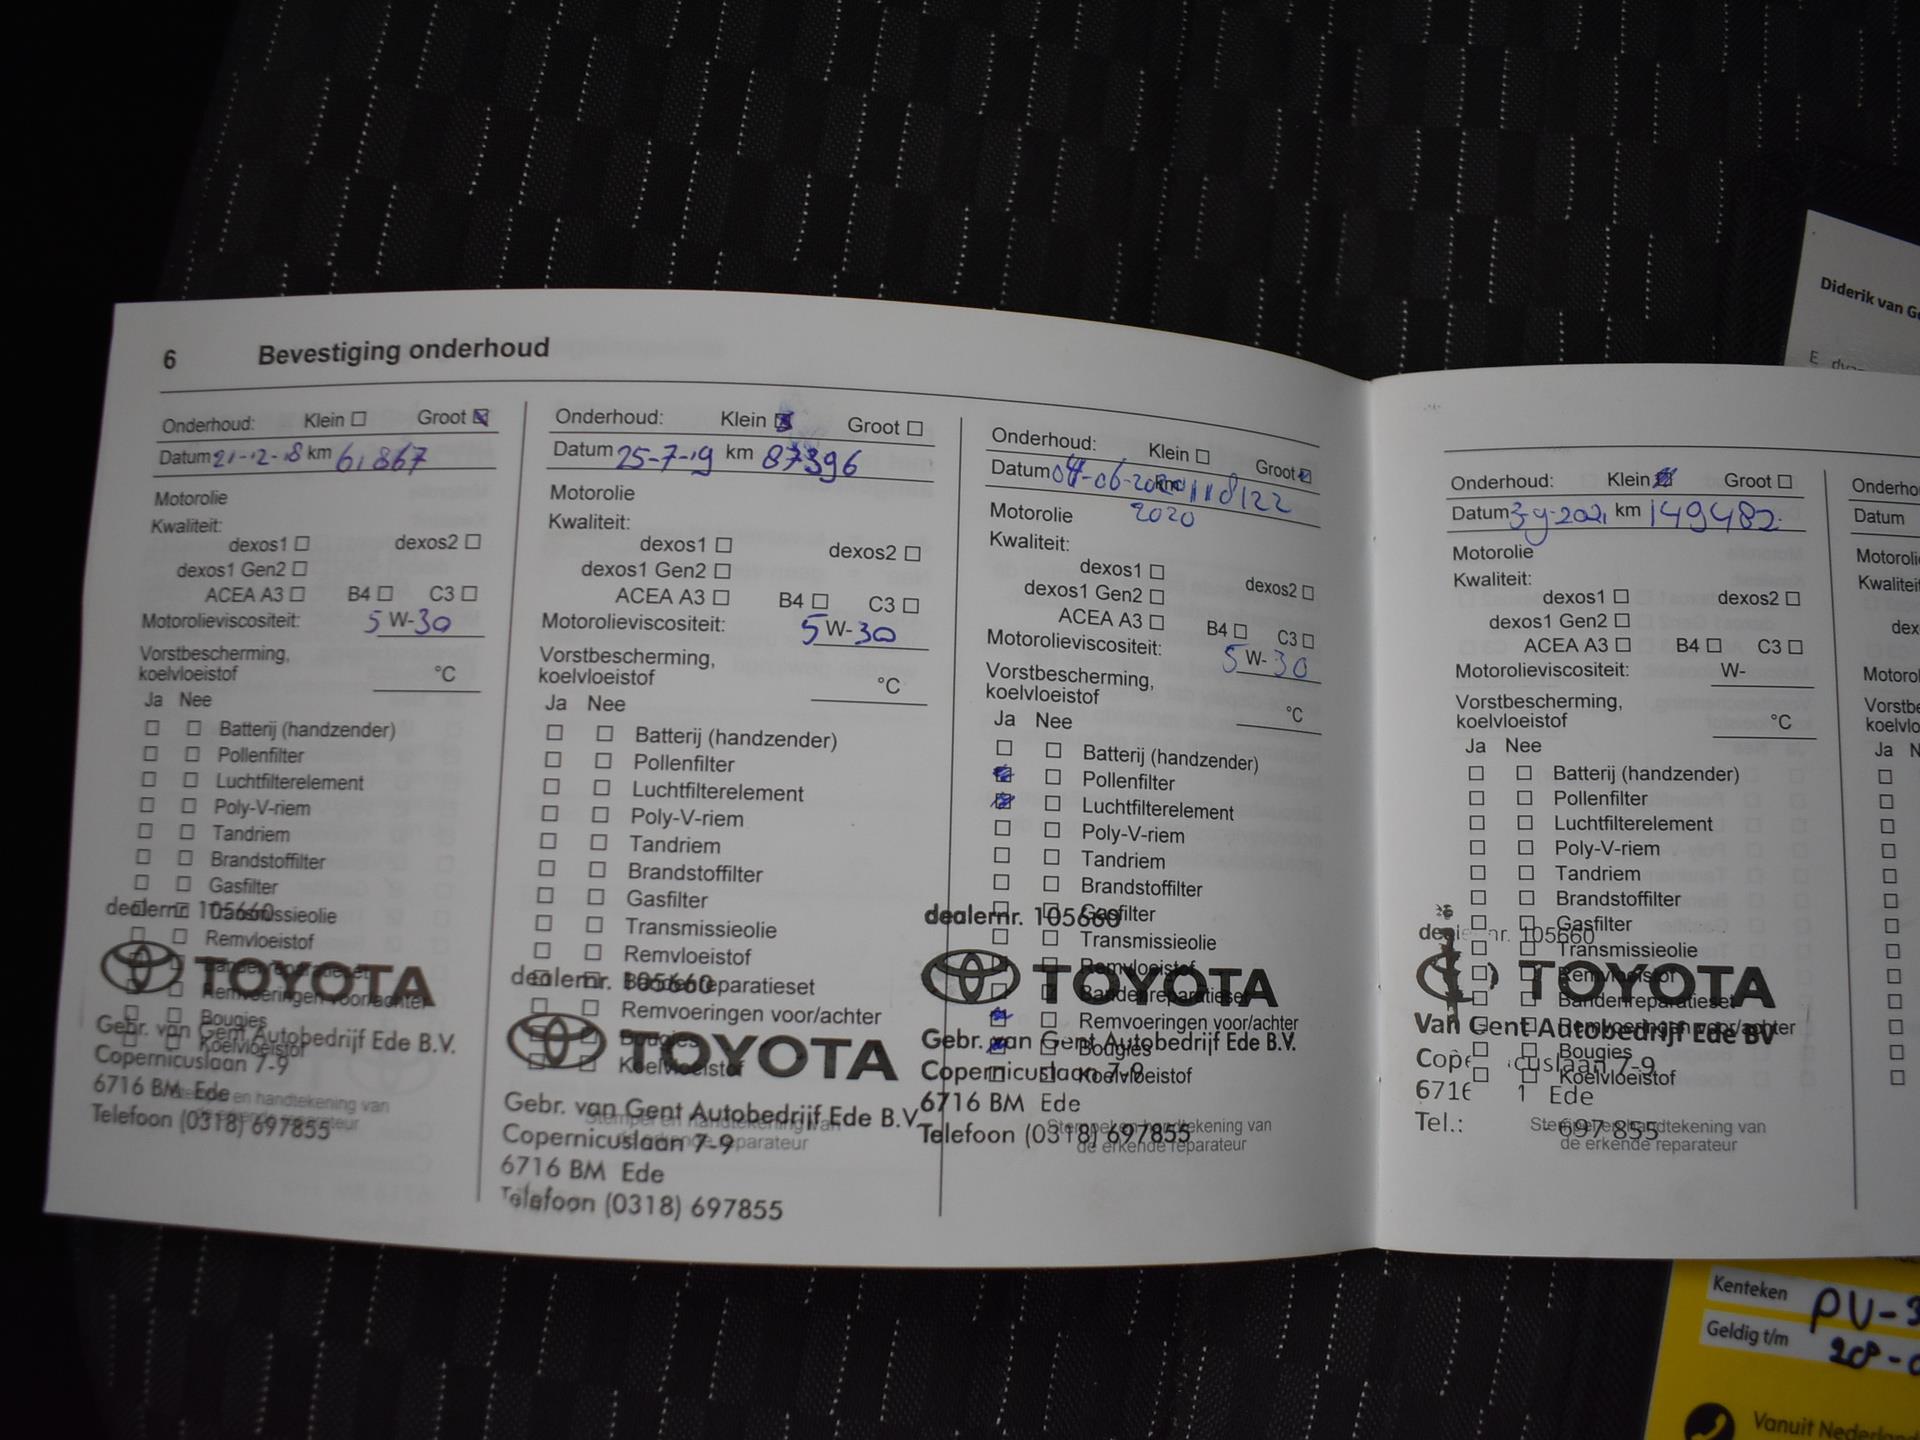 6 Bevestiging onderhoud
Onderhoud: Klein Groot
Datum 21-12-18 km 61867
Motorolie
Kwaliteit:
dexos1 dexos2
dexos1 Gen2
ACEA A3 B4 C3
Motorolieviscositeit: 5 W-30
Vorstbescherming,
koelvloeistof °C
Ja Nee
Batterij (handzender)
Pollenfilter
Luchtfilterelement
Poly-V-riem
Tandriem
Brandstoffilter
Gasfilter
dealernr. 105660
Transmissieolie
Remvloeistof
TOYOTA
Bandenreparatieset
Remvoeringen voor/achter
Bougies
Gebr. van Gent Autobedrijf Ede B.V.
Koelvloeistof
Copernicuslaan 7-9
6716 BM Ede
Stempel en handtekening van
Telefoon (0318) 697855
de erkende reparateur
Onderhoud: Klein Groot
Datum 25-7-19 km 87396
Motorolie
Kwaliteit:
dexos1 dexos2
dexos1 Gen2
ACEA A3 B4 C3
Motorolieviscositeit: 5 W-30
Vorstbescherming,
koelvloeistof °C
Ja Nee
Batterij (handzender)
Pollenfilter
Luchtfilterelement
Poly-V-riem
Tandriem
Brandstoffilter
Gasfilter
Transmissieolie
Remvloeistof
dealernr. 105660
Bandenreparatieset
Remvoeringen voor/achter
Bougies
TOYOTA
Koelvloeistof
Gebr. van Gent Autobedrijf Ede B.V.
Stempel en handtekening van
Copernicuslaan 7-9
de erkende reparateur
6716 BM Ede
Telefoon (0318) 697855
Onderhoud: Klein Groot
Datum 04-06-2020 km 118122
2020
Motorolie
Kwaliteit:
dexos1 dexos2
dexos1 Gen2
ACEA A3 B4 C3
Motorolieviscositeit: 5 W-30
Vorstbescherming,
koelvloeistof °C
Ja Nee
Batterij (handzender)
Pollenfilter
Luchtfilterelement
Poly-V-riem
Tandriem
Brandstoffilter
dealernr. 105660
Gasfilter
Transmissieolie
Remvloeistof
TOYOTA
Bandenreparatieset
Remvoeringen voor/achter
Gebr. van Gent Autobedrijf Ede B.V.
Bougies
Copernicuslaan 7-9
Koelvloeistof
6716 BM Ede
Stempel en handtekening van
Telefoon (0318) 697855
de erkende reparateur
Onderhoud: Klein Groot
Datum 3-9-2021 km 149482
Motorolie
Kwaliteit:
dexos1 dexos2
dexos1 Gen2
ACEA A3 B4 C3
Motorolieviscositeit: W-
Vorstbescherming,
koelvloeistof °C
Ja Nee
Batterij (handzender)
Pollenfilter
Luchtfilterelement
Poly-V-riem
Tandriem
Brandstoffilter
Gasfilter
nr. 105660
Transmissieolie
Remvloeistof
TOYOTA
Bandenreparatieset
Remvoeringen voor/achter
Van Gent Autobedrijf Ede BV
Bougies
Cope icuslaan 7-9
Koelvloeistof
6716 Ede
Tel.: -697 855
Stempel en handtekening van
de erkende reparateur
Onderho
Datum
Motoroli
Kwaliteit
dex
Motorol
Vorstbe
koelvlo
Ja N
Diderik van Ge
Kenteken PU-3
Geldig t/m 28-0
Vanuit Nederland